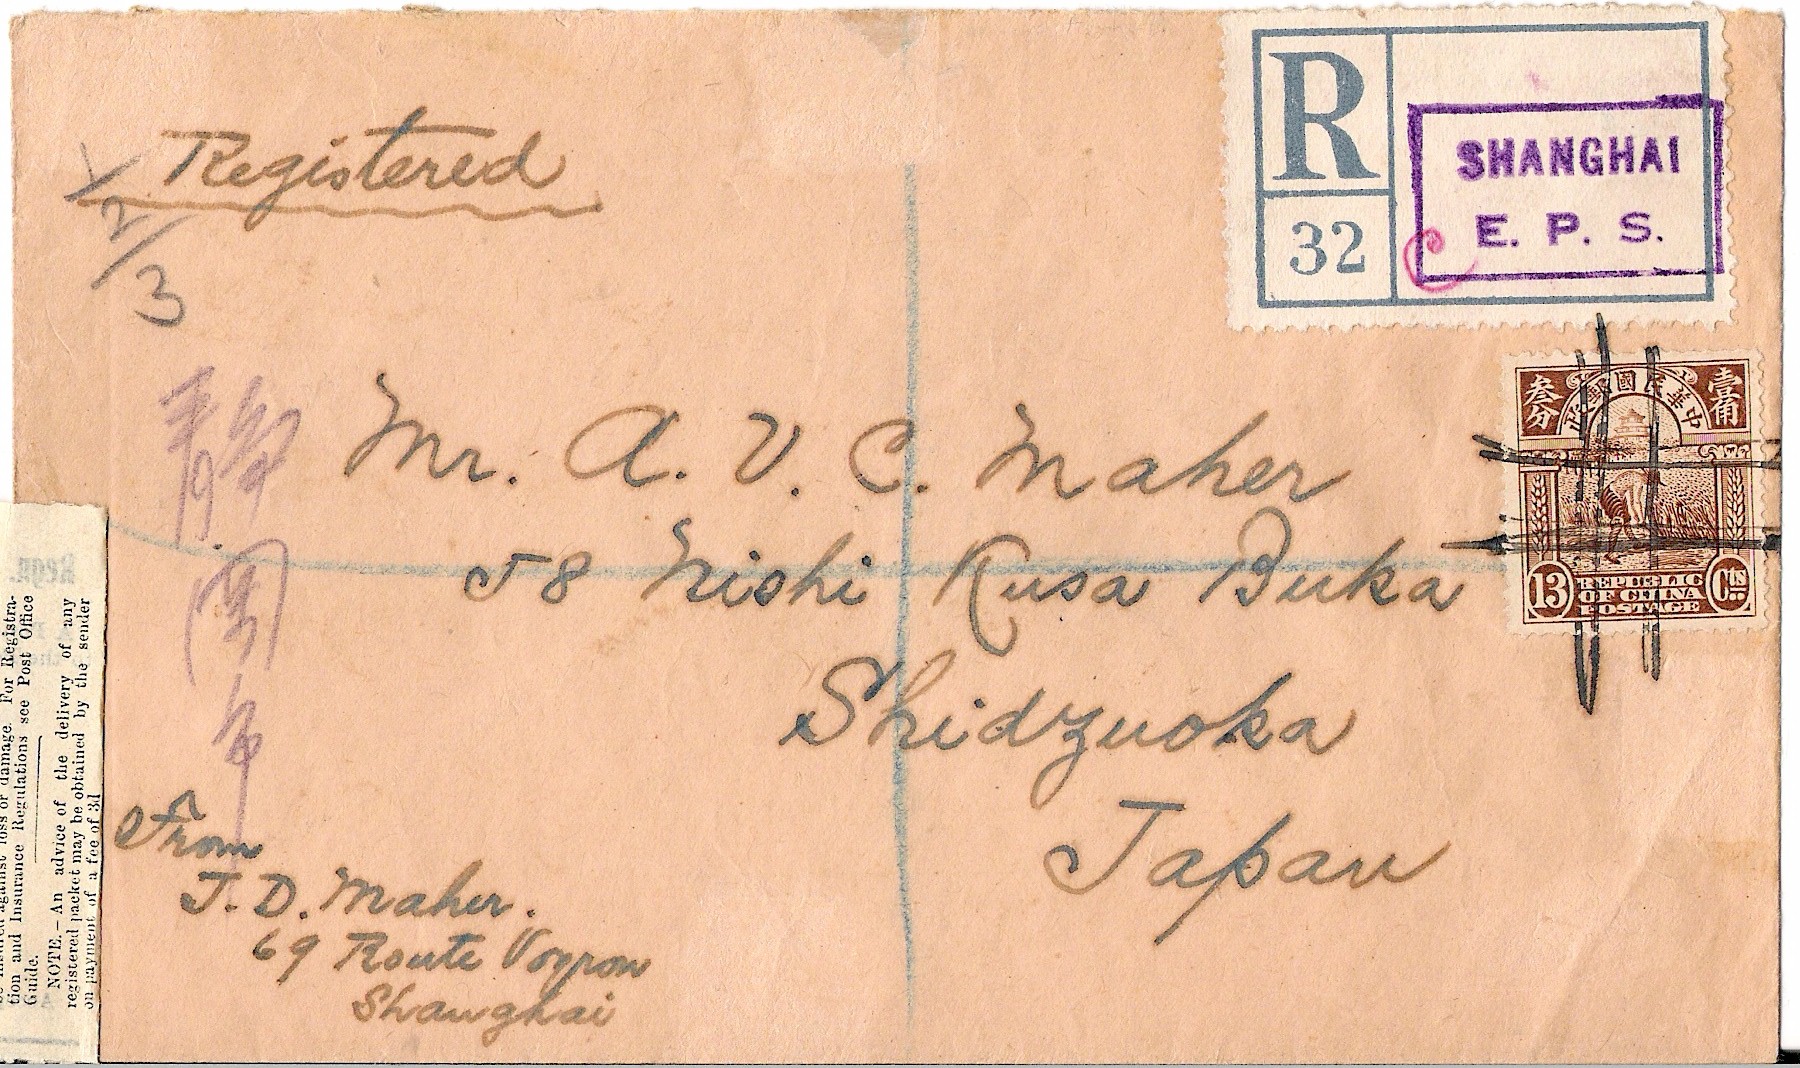 Registered
1/2/3
R
32
SHANGHAI
E. P. S.
叁分
中華民國郵政
壹角
13
REPUBLIC
OF CHINA
POSTAGE
Cts
Mr. A. V. C. Maher
58 Nishi Kusa Buka
Shidzuoka
Japan
From
J. D. Maher.
69 Route Voyron
Shanghai
Regn.
against loss or damage. For Registra-
tion and Insurance Regulations see Post Office
Guide.
NOTE.—An advice of the delivery of any
registered packet may be obtained by the sender
on payment of a fee of 3d